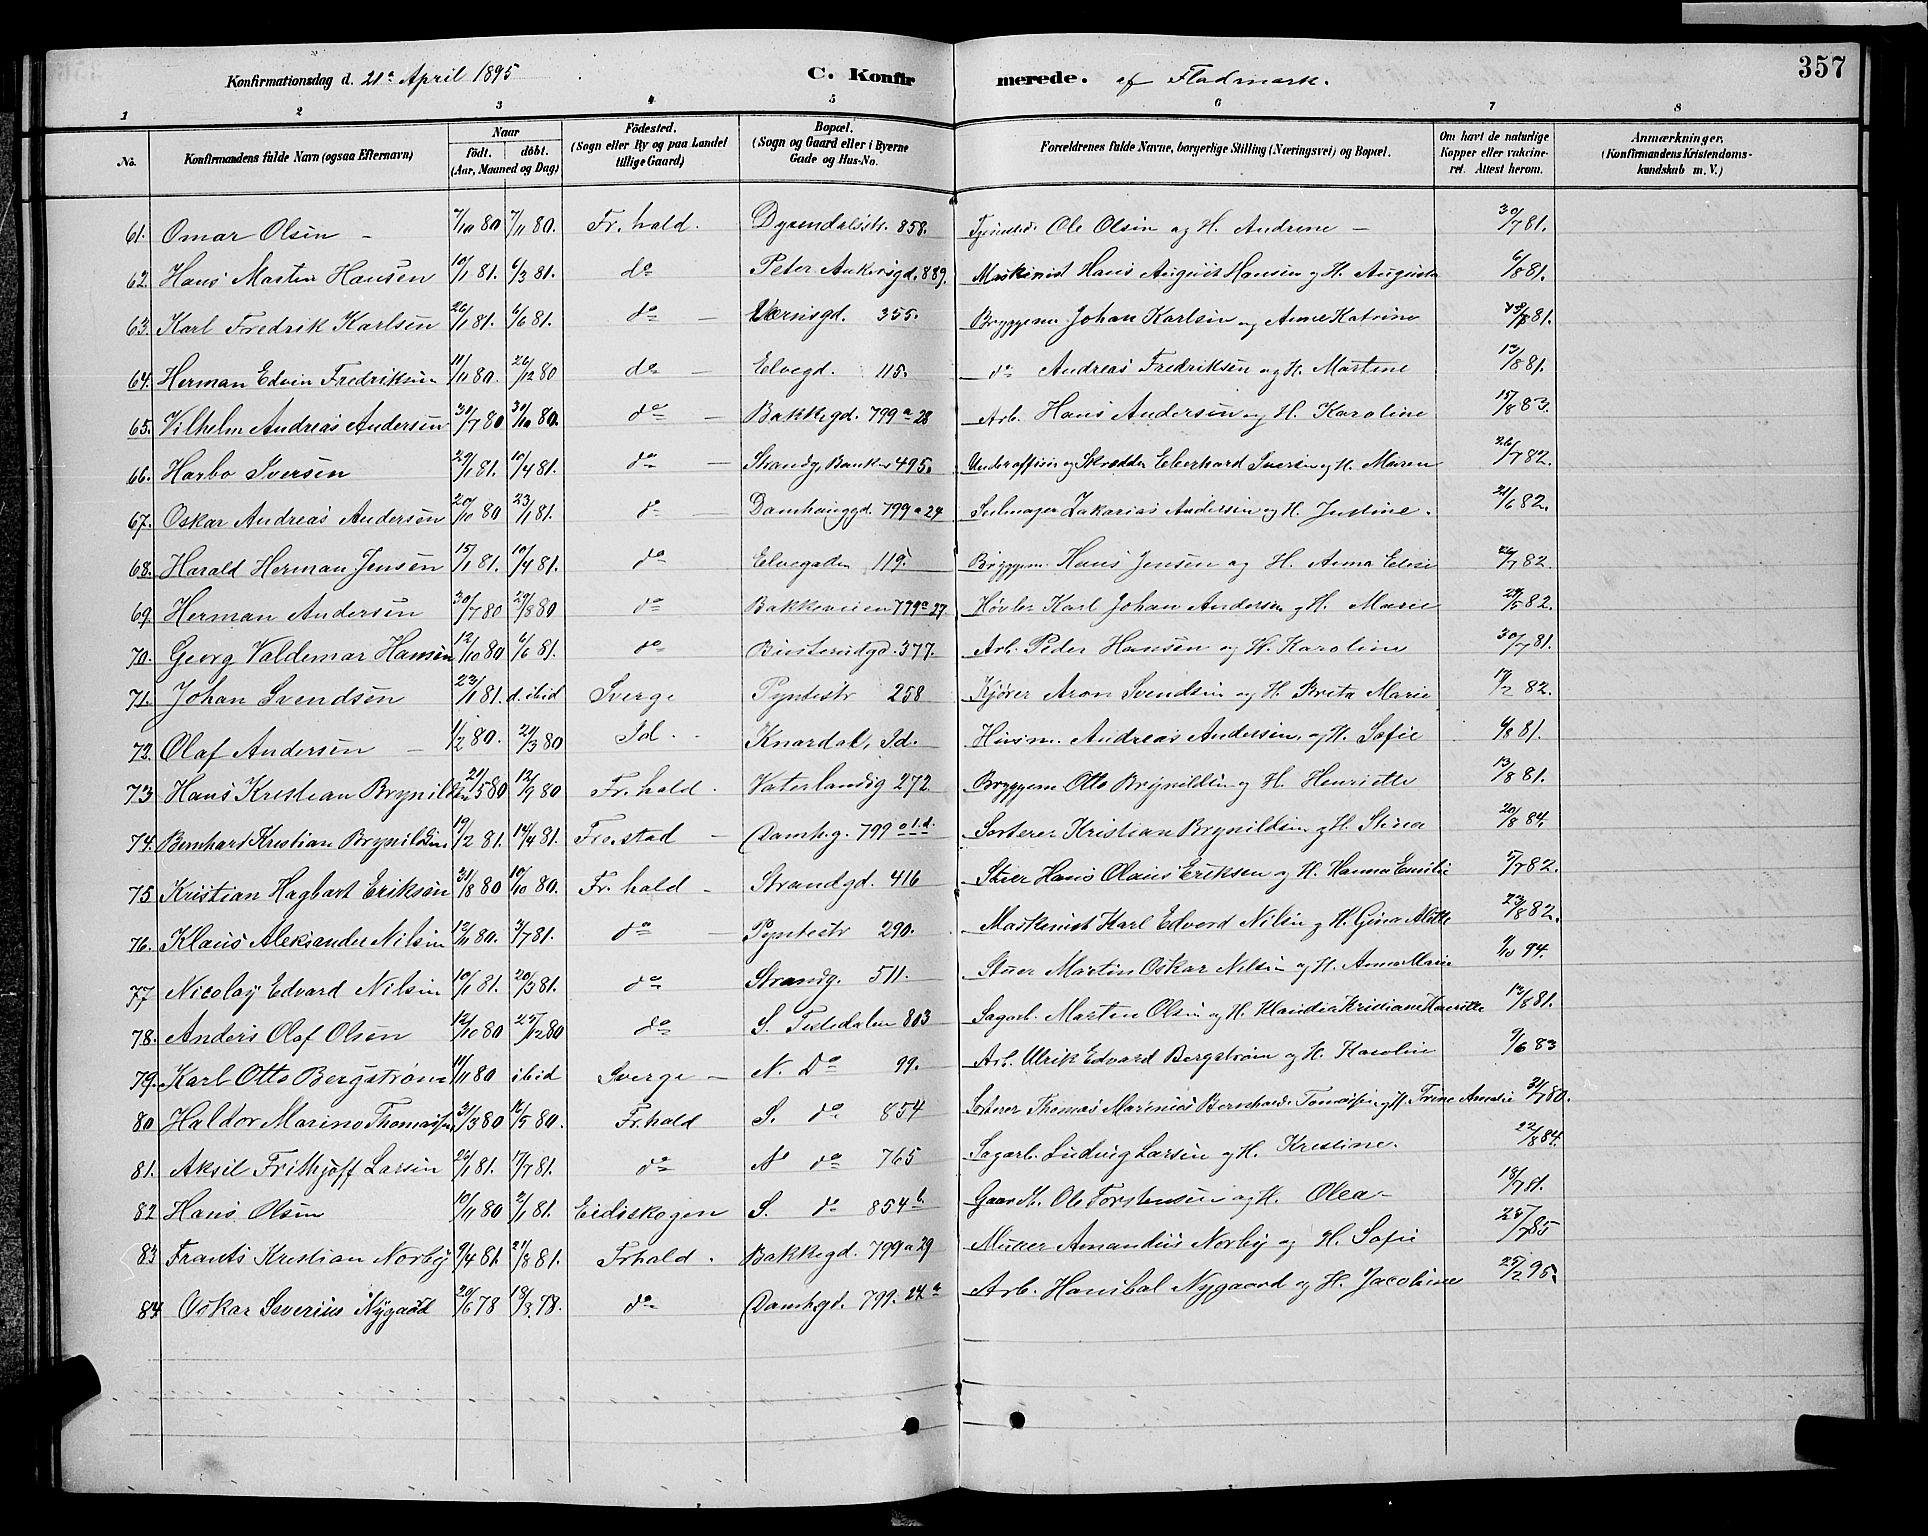 357
Konfirmationsdag d. 21de April 1895 C. Konfirmerede. af Fladmark.
1 2 3 4 5 6 7 8
No. Konfirmandens fulde Navn (ogsaa Efternavn) Naar født. døbt. (Aar, Maaned og Dag) Fødested. (Sogn eller By og paa Landet tillige Gaard) Bopæl. (Sogn og Gaard eller i Byerne Gade og Hus-No. Forældrenes fulde Navne, borgerlige Stilling (Næringsvei) og Bopæl. Om havt de naturlige Kopper eller vakcineret. Attest herom. Anmærkninger. (Konfirmandens Kristendomskundskab m. V.)
61. Omar Olsen 7/10 80 7/11 80. Fr.hald. Dyrendalsstr. 858. Ole Olsen og H. Andrine 30/7 81.
62. Hans Martin Hansen 10/1 81. 6/3 81. do Peter Ankersgd. 889. Maskinist Hans August Hansen og H. Augusta 6/8 81.
63. Karl Fredrik Karlsen 26/1 81. 6/6 81. do Værnsgd. 355. Bryggem. Johan Karlsen og Anne Katrine 81.
64. Herman Edvin Fredriksen 11/11 80. 26/12 80 do Elvegd. 115. do Andreas Fredriksen og H. Martine 13/8 81.
65. Vilhelm Andreas Andersen 30/7 80 30/10 80. do Bakkegd. 799 a 28 Arb. Hans Andersen og H. Karoline 15/8 83.
66. Harbo Iversen 29/1 81. 10/4 81. do Strandg. Banken 495. Underofficer og Skrædder Eberhard Iversen og H. Maren 26/7 82.
67. Oskar Andreas Andersen 20/10 80 23/1 81. do Damhauggd. 799 a 24 Seilmager Zakarias Andersen og H. Justine. 21/6 82.
68. Harald Herman Jensen 15/1 81. 10/4 81. do Elvegaden 119. Bryggem. Hans Jensen og H. Anna Elise 26/7 82.
69. Herman Andersen 30/7 80 29/8 80 do Bakkeveien 779 a 27. Høvler Karl Johan Andersen og H. Marie 82.
70. Georg Valdemar Hansen 12/10 80 6/6 81. do Busterudgd. 377. Arb. Peder Hansen og H. Karoline 30/7 81.
71. Johan Svendsen 23/1 81. d. ibid Sverge Pyntestr 258 Kjører Aron Svendsen og H. Brita Marie 82.
72. Olaf Andersen 1/2 80. 29/3 80 Id. Knardal, Id. Husm. Andreas Andersen og H. Sofie 6/8 81.
73 Hans Kristian Brynildsen 21/5 80 12/9 80 Fr.hald. Vaterlandsg 272 Bryggem Otto Brynildsen og H. Henriette 13/8 81.
74. Bernhard Kristian Brynildsen 19/2 81. 14/4 81. Fr.stad Damhg. 799 Sorterer Kristian Brynildsen og H. Stina 20/8 84.
75. Kristian Hagbart Eriksen 31/8 80 10/10 80. Fr.hald Strandgd. 416 Stuer Hans Olaus Eriksen og H. Hanna Emilie 5/7 82.
76. Klaus Aleksander Nilsen 12/11 80. 3/7 81. do Pyntestr 290. Maskinist Karl Edvard Nilsen og H. Gina 23/8 82.
77 Nicolay Edvard Nilsen 10/1 81. 20/3 81. do Strandg. 511. Stuer Martin Oskar Nilsen og H. Anna Marie 94.
78. Anders Olaf Olsen 12/10 80 25/12 80 do S. Tistedalen 803 Sagarb. Martin Olsen og H. Klaudia Kristiane Henriette 13/8 81.
79. Karl Otto Bergstrøm 11/11 80 ibid Sverge N. Do 99. Arb. Ulrik Edvard Bergstrøm og H. Karoline 9/6 83
80 Haldor Marino Thomassen 31/3 80 16/5 80. Fr.hald S. do 854 Sorterer Thomas Marinius Bernhard Tomassen og H. Trine Amalie 31/7 80.
81. Aksel Frithjoff Larsen 26/1 81. 17/7 81. do N do 765 Sagarb. Ludvig Larsen og H. Kristine. 22/8 84.
82 Hans Olsen 10/11 80 2/1 81. Eidskogen S. do 854 b. Gaardb. Ole Torstensen og H. Olea 18/7 81.
83 Frants Kristian Norby 9/4 81 21/8 81. Frhald. Bakkegd. 799 a 29 Murer Amandus Norby og H. Sofie 25/7 85
84 Oskar Severius Nygaard 20/6 78 18/3 78. do Damhgd. 799. 24 a Arb. Hanibal Nygaard og H. Jacobine 25/2 95.